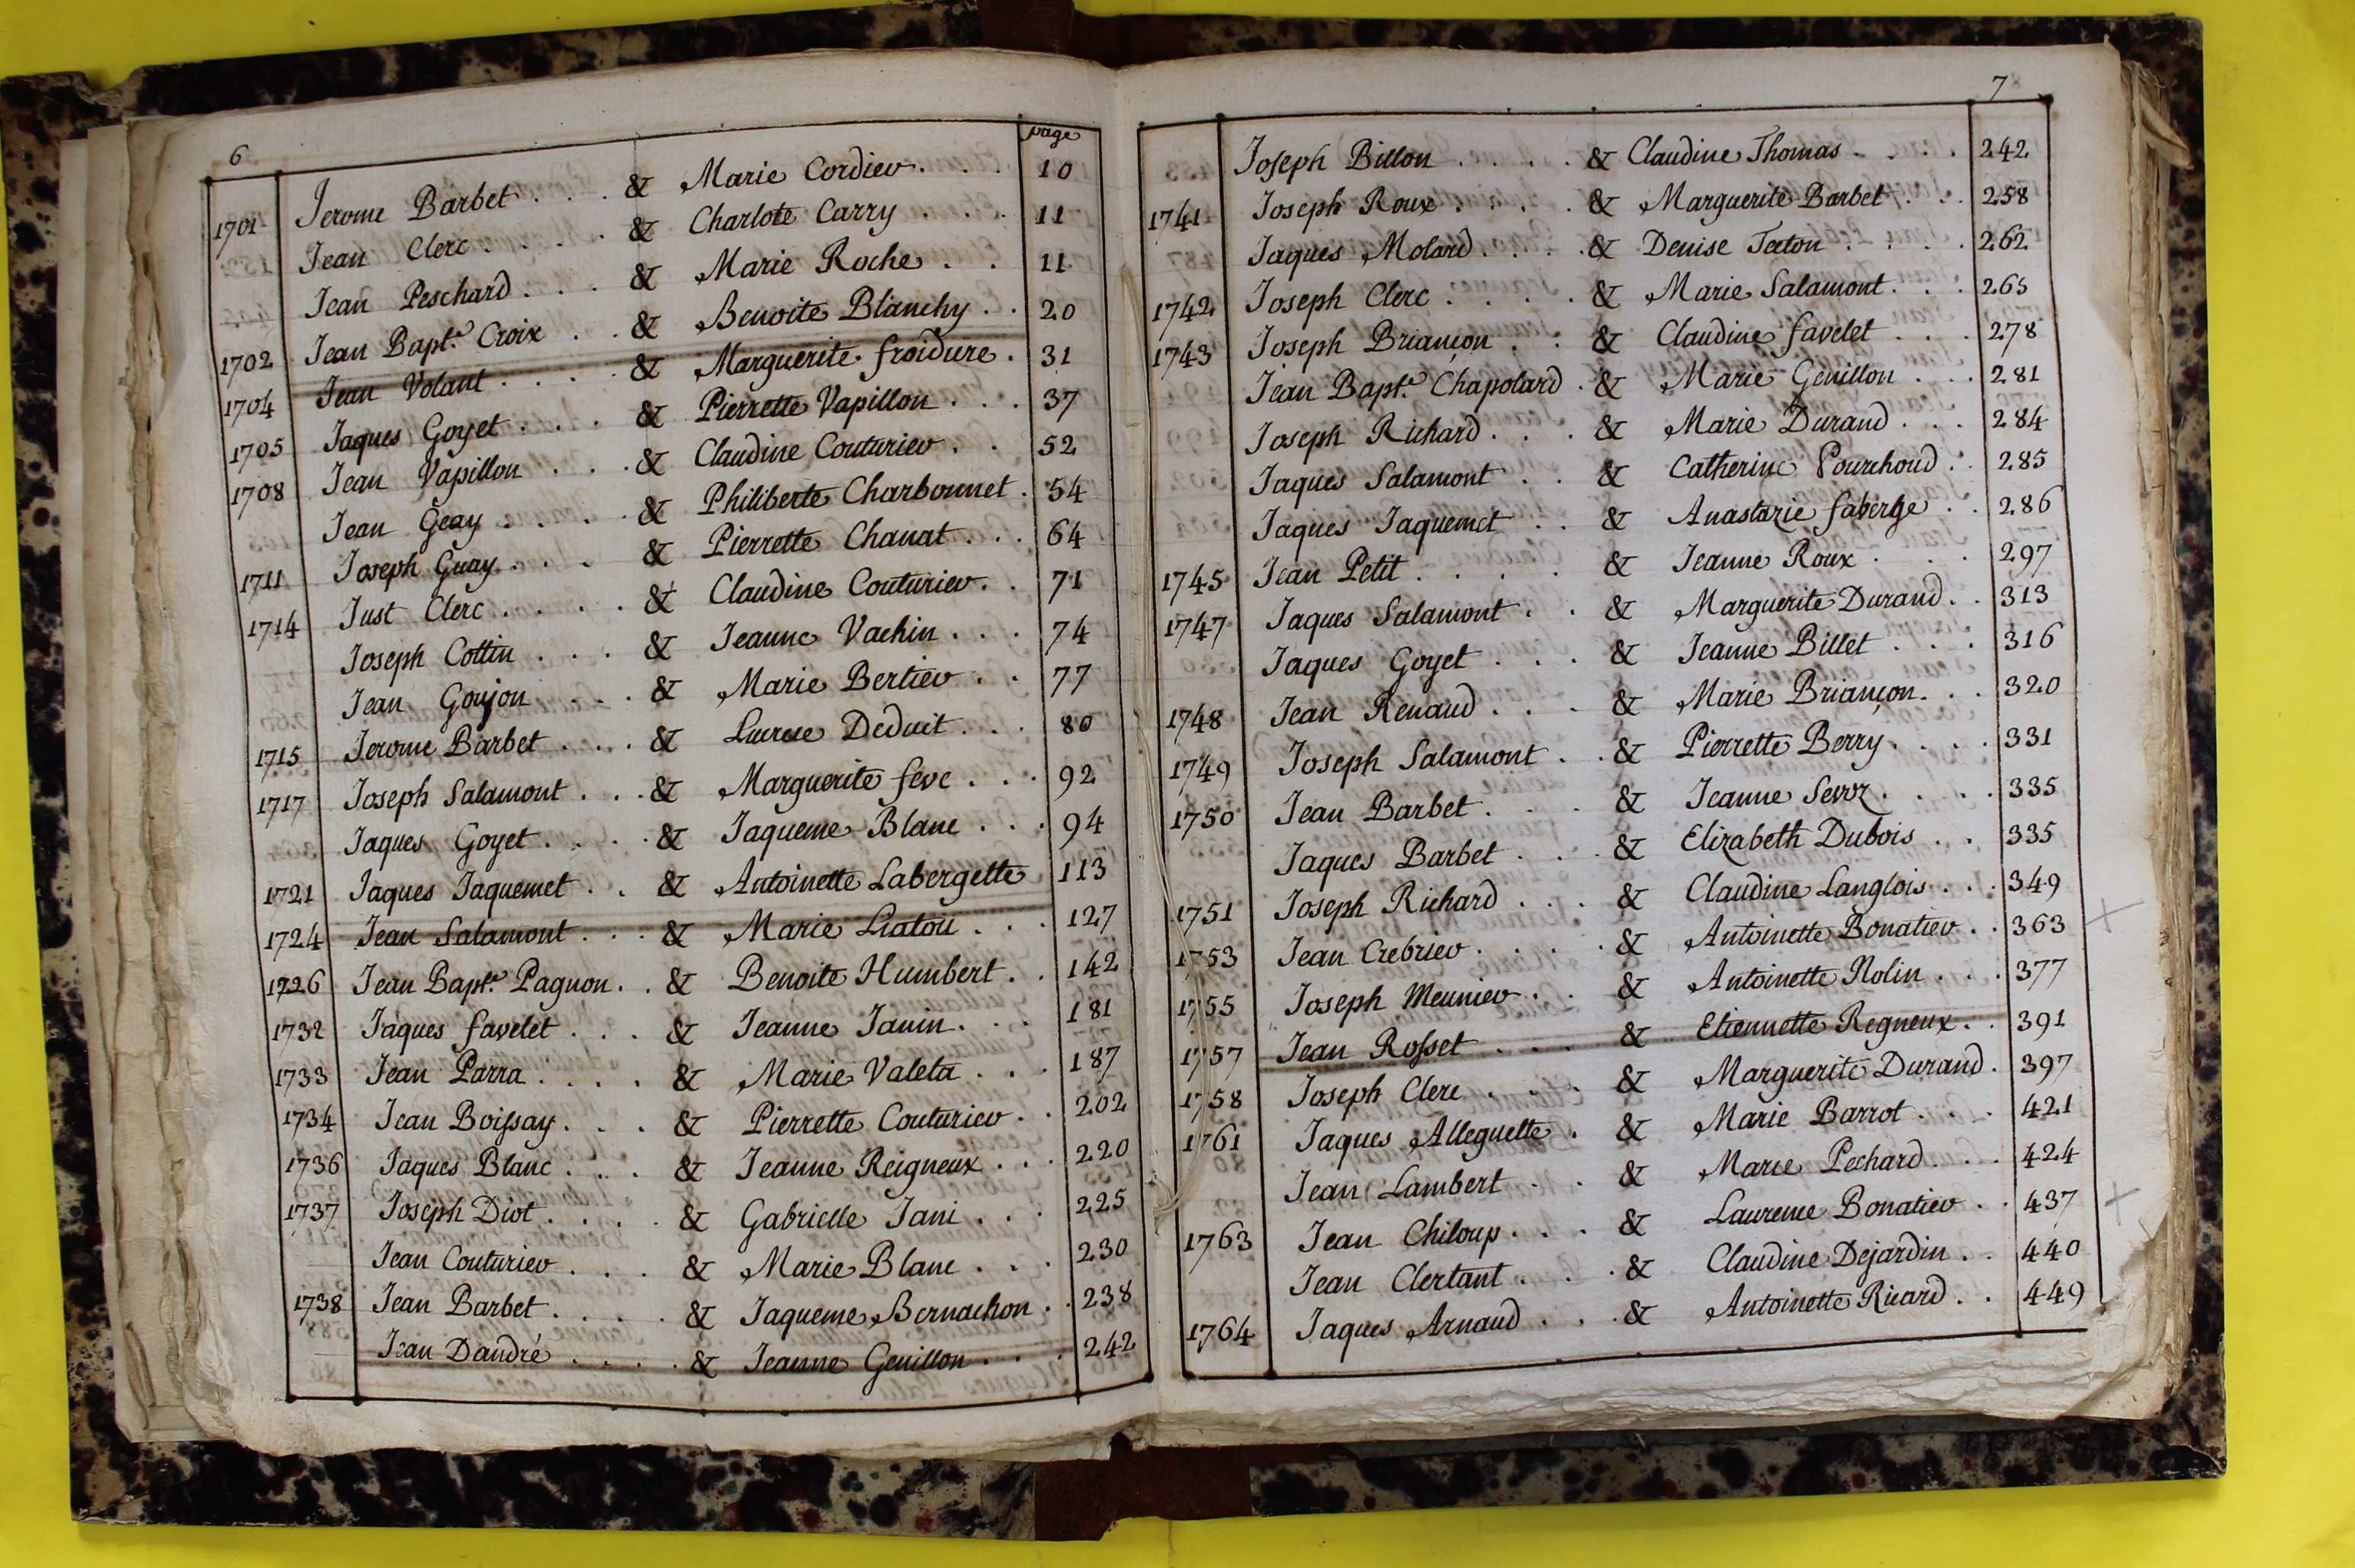 6
page
1701 Jerome Barbet . . . & Marie Cordier . . . 10
Jean Clerc . . . . & Charlote Carry . . . 11
Jean Peschard . . . & Marie Roche . . 11
1702 Jean Bapt.e Croix . . & Benoite Blanchy . . 20
1704 Jean Volant . . . . & Marguerite froidure . 31
1705 Jaques Goyet . . . & Pierrette Vapillon . . . 37
1708 Jean Vapillon . . . & Claudine Couturier . . 52
Jean Geay . . . . & Philiberte Charbonnet . 54
1711 Joseph Guay . . . & Pierrette Chanat . . . 64
1714 Just Clerc . . . . & Claudine Couturier . . 71
Joseph Cottin . . . & Jeanne Vachin . . . 74
Jean Goujon . . . & Marie Bertier . . 77
1715 Jerome Barbet . . . & Lucrece Deduit . . . 80
1717 Joseph Salamont . . . & Marguerite feve . . . 92
Jaques Goyet . . . . & Jaqueme Blanc . . . 94
1721 Jaques Jaquemet . . & Antoinette Labergette 113
1724 Jean Salamont . . . & Marie Liatou . . . 127
1726 Jean Bapt.e Pagnon . . & Benoite Humbert . . 142
1732 Jaques favelet . . . & Jeanne Janin . . . 181
1733 Jean Parra . . . . & Marie Valeta . . . 187
1734 Jean Boissay . . . & Pierrette Couturier . . 202
1736 Jaques Blanc . . . & Jeanne Reigneux . . . 220
1737 Joseph Diot . . . . & Gabrielle Jani . . . 225
Jean Couturier . . . & Marie Blanc . . . 230
1738 Jean Barbet . . . . & Jaqueme Bernachon . . 238
Jean Dandré . . . . & Jeanne Genillon . . . 242
7
Joseph Billon . . . . & Claudine Thomas . . . . 242
1741 Joseph Roux . . . . & Marguerite Barbet . . . 258
Jaques Molard . . . . & Denise Teton . . . . 262
1742 Joseph Clerc . . . . & Marie Salamont . . . 265
1743 Joseph Briançon . . & Claudine favelet . . . 278
Jean Bapt.e Chapolard . & Marie Genillon . . . 281
Joseph Richard . . . & Marie Durand . . . 284
Jaques Salamont . . & Catherine Pourchoud . . 285
Jaques Jaquemet . . & Anastazie faberge . . 286
1745 Jean Petit . . . . & Jeanne Roux . . . 297
1747 Jaques Salamont . . & Marguerite Durand . . 313
Jaques Goyet . . . & Jeanne Billet . . . 316
1748 Jean Renaud . . . & Marie Briançon . . . 320
1749 Joseph Salamont . . & Pierrette Berry . . . . 331
1750 Jean Barbet . . . & Jeanne . . . . 335
Jaques Barbet . . . & Elizabeth Dubois . . 335
1751 Joseph Richard . . . & Claudine Langlois . . . 349
1753 Jean Crebrier . . . . & Antoinette Bonatier . . 363
1755 Joseph Meunier . . & Antoinette Nolin . . . 377
1757 Jean Rosset . . . & Etiennette Regneux . . 391
1758 Joseph Clerc . . . & Marguerite Durand . 397
1761 Jaques Alleguette . & Marie Barrot . . . 421
Jean Lambert . . & Marie Pechard . . . 424
1763 Jean Chiloup . . . & Laurence Bonatier . . 437
Jean Clertant . . . & Claudine Dejardin . . 440
1764 Jaques Arnaud . . . & Antoinette Ricard . . 449